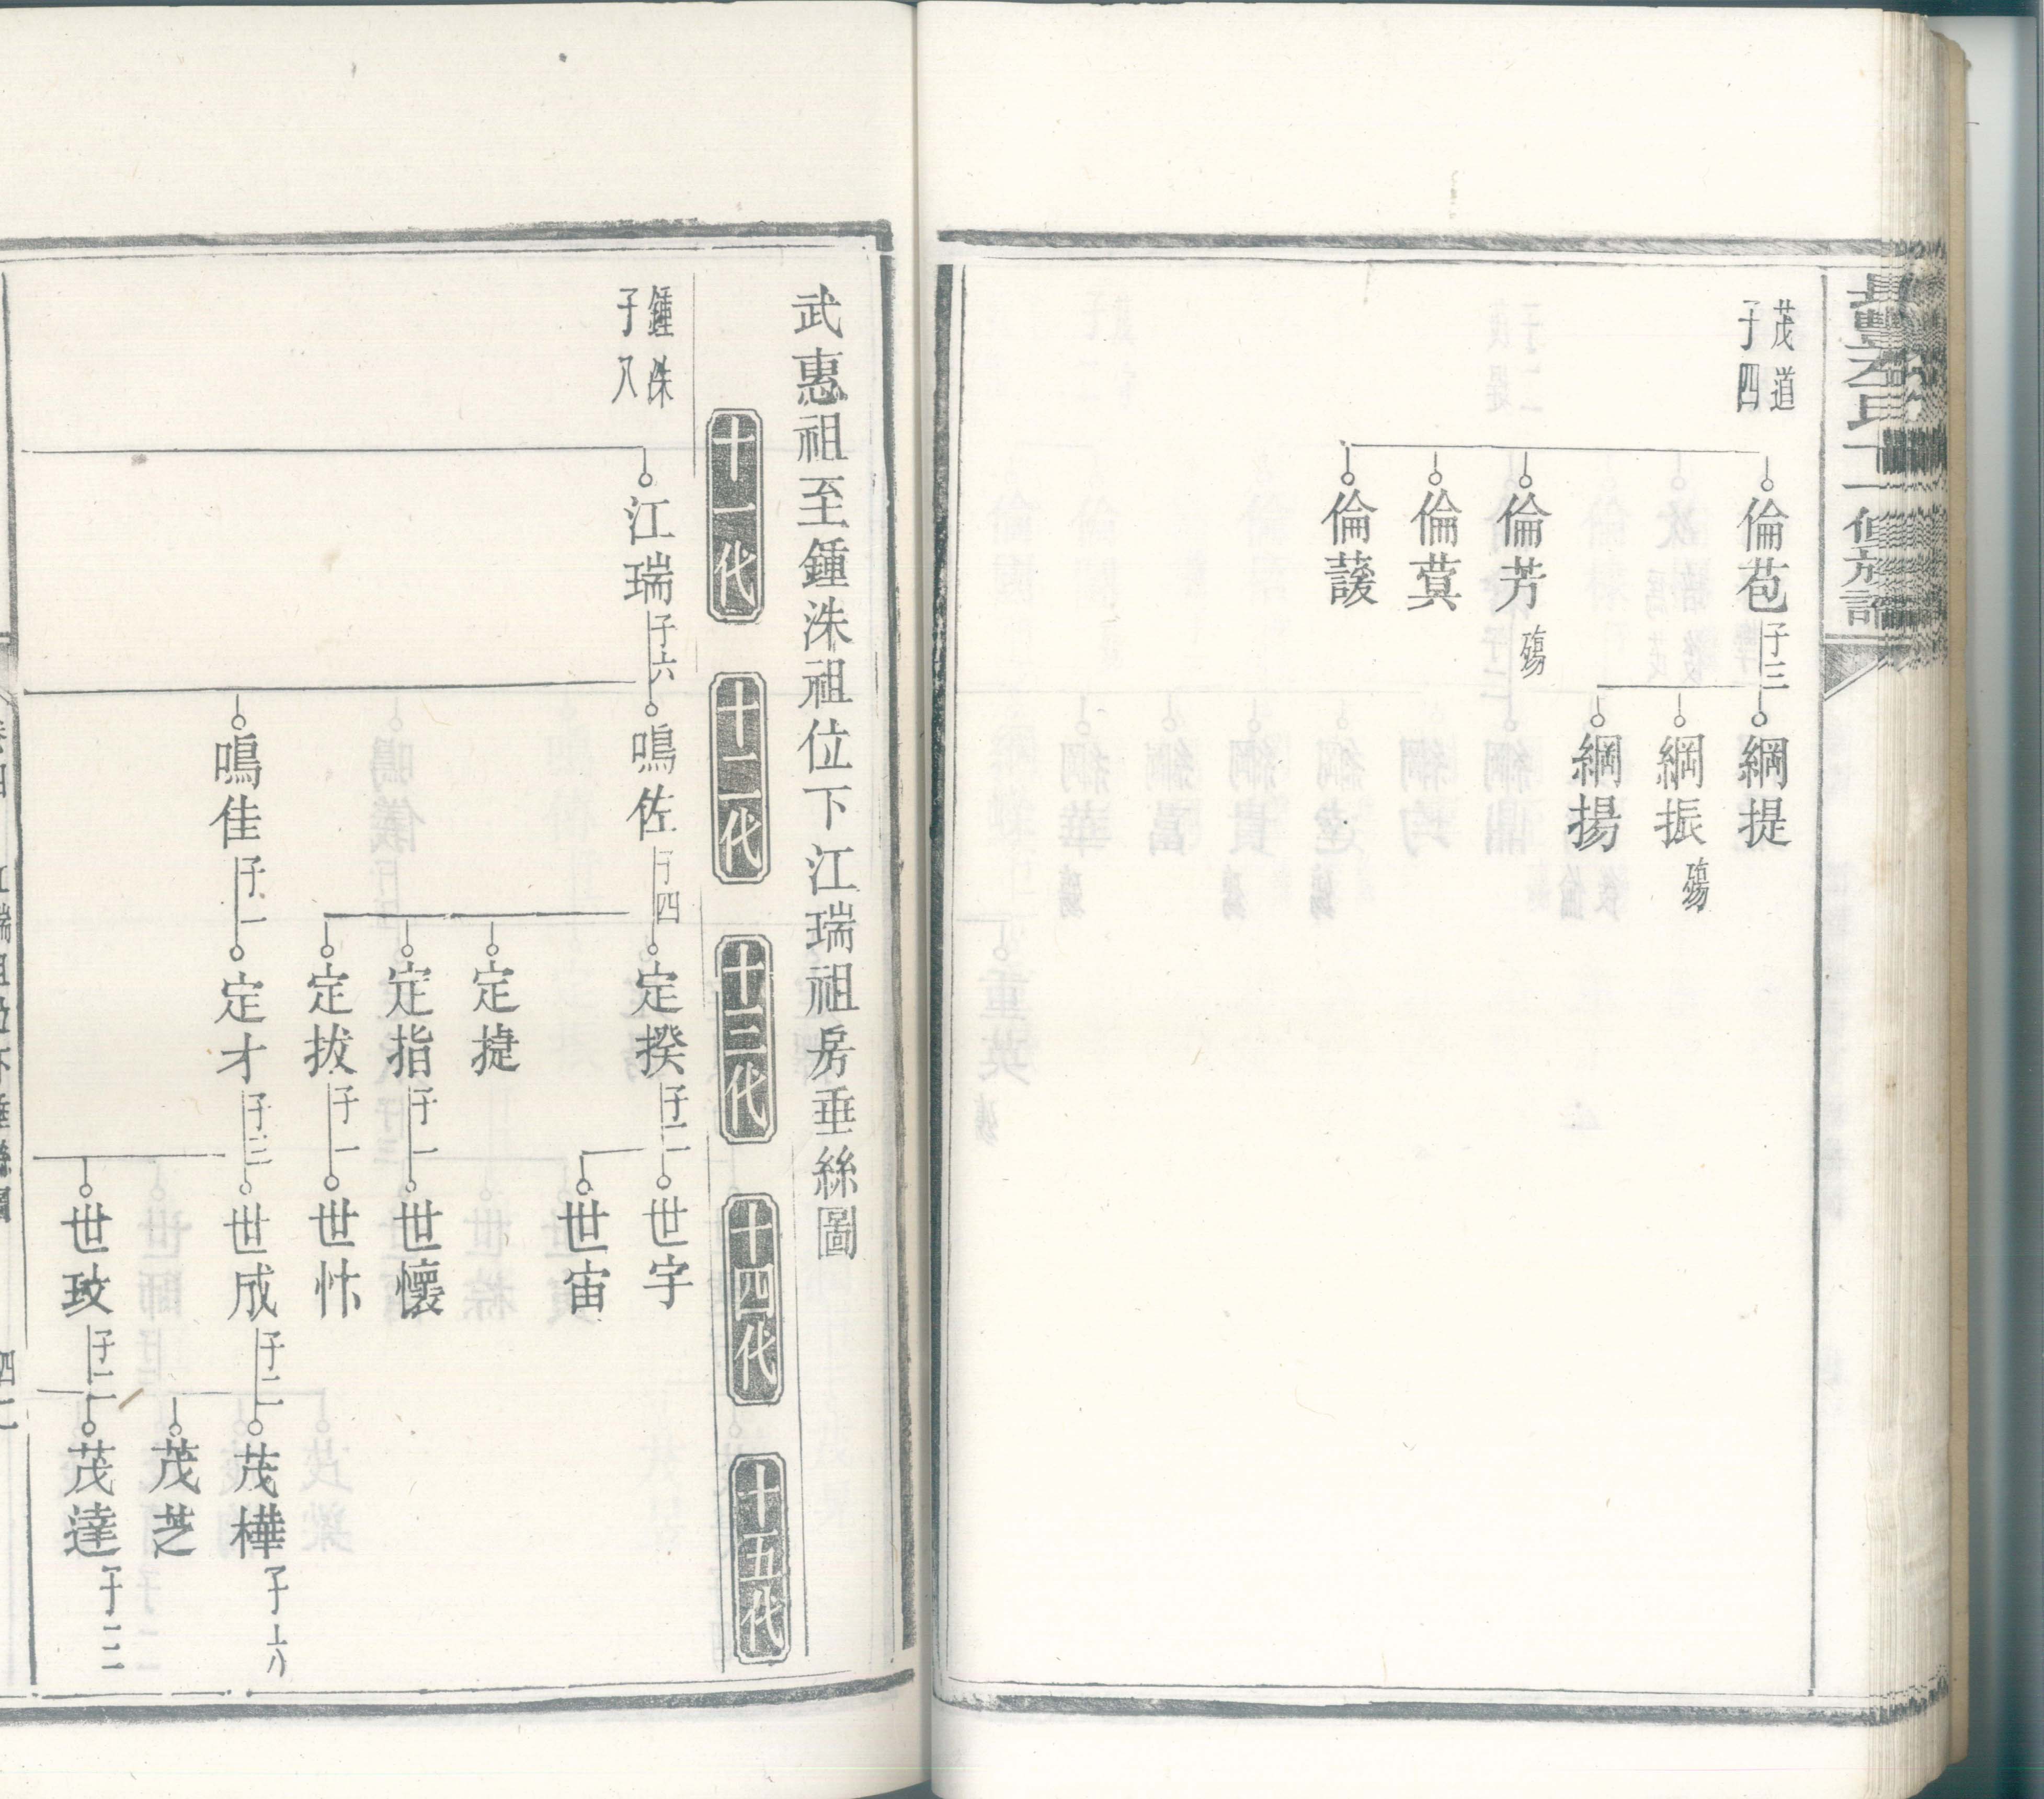 茂道
子四
倫苞
子三
綱提
綱振
殤
綱揚
倫芳
殤
倫蓂
倫蕿
武惠祖至鍾洙祖位下江瑞祖房垂絲圖
十一代
十二代
十三代
十四代
十五代
鍾洙
子八
江瑞
子六
鳴佐
子四
定揆
子二
世宇
世宙
定捷
定指
子一
世懷
定拔
子一
世忭
鳴佳
子一
定才
子三
世成
子二
茂樺
子六
茂芝
世玫
子二
茂達
子二